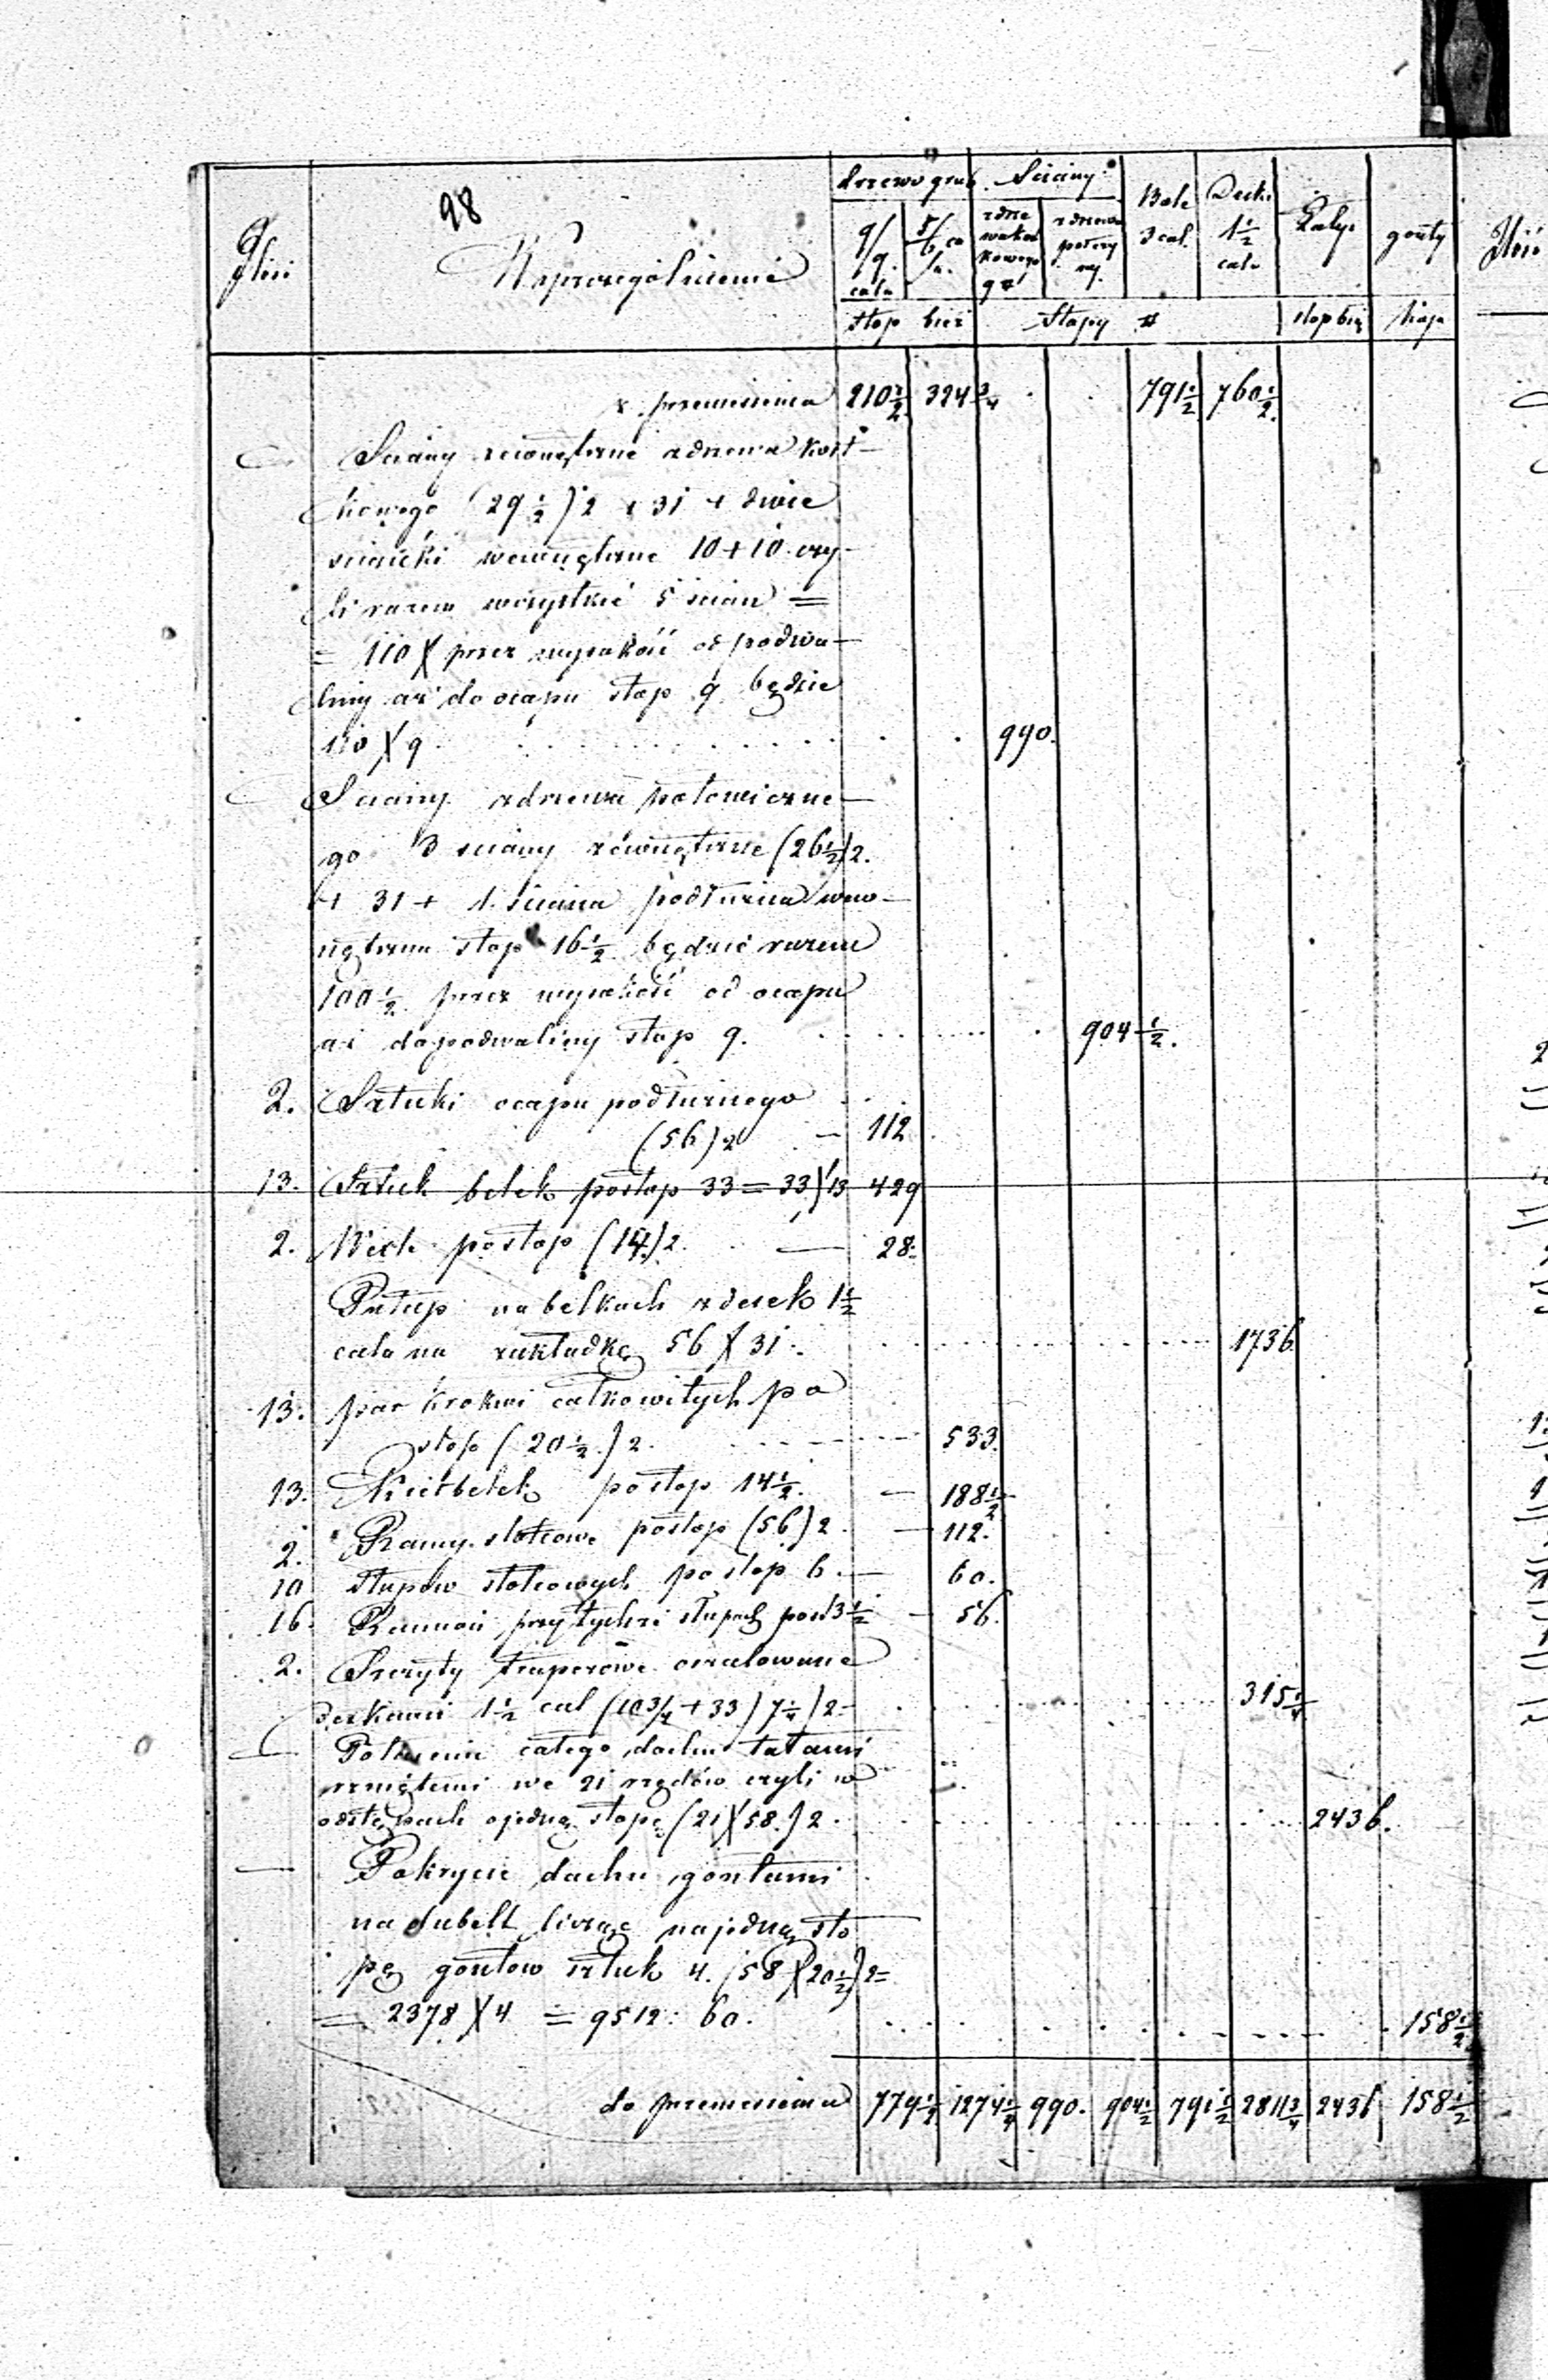 98
Ilość
Wyszczególnienie
drzewo grub.
Sciany
Bale
3 cal.
Decki
1 1/2
cala
Łaty
gonty
Ilość
9/9 cala
5/6 ca la.
z drze
wa kost
kowego
z drzewa
połowy
stop bież
Stopy #
stop bież
kopa
z przeniesienia 210 1/2 324 3/4 . . 791 1/2 760 1/2
Sciany zewnętrzne z drzewa kost-
kowego (29 1/2) 2 + 31 + dwie
scianki wewnętrzne 10 + 10. czy-
li razem wszystkie 5 scian =
= 110 X przez wysokość od podwa-
liny aż do ocapu stop 9 będzie
110 X 9 . . . 990.
Sciany z drzewa połowiczne-
go 3 sciany zewnętrzne (26 1/2) 2.
+ 31 + 1. sciana podłużna wew-
nętrzna stop 16 1/2 będzie razem
100 1/2 przez wysokość od ocapu
aż do podwaliny stop 9. . . . 904 1/2.
2. Sztuki ocapu podłużnego
(56) 2 — 112
13. Sztuk belek po stop 33 = 33 X 13 429
2. Wich po stop (14.) 2. — 28.
Pułap na belkach z desek 1 1/2
cala na zakładkę 56 X 31. . . . 1736
13. par krokwi całkowitych po
stop (20 1/2.) 2. . . . 533.
13. po stop 14 1/2. — 188 1/2
2. Ramy stolcowe po stop (56) 2. — 112.
10 słupów stolcowych po stop 6. — 60.
16. Ramion przy tychże słupach po st 3 1/2 — 56.
2. Szczyty oszalowane
deskami 1 1/2 cal (10 3/4 + 33) 7 1/4) 2 = . . . 315 1/4
— Połacenie całego dachu łatami
rzniętemi we 21 rzędów czyli w
odstępach o jedną stopę (21 X 58.) 2. . . . 2436.
— Pokrycie dachu gontami
na dubelt licząc na jedną sto
pę gontow sztuk 4. (58 X 20 1/2) 2 =
= 2378 X 4 = 9512 : 60. . . . 158 1/2
do przeniesienia 779 1/2 1274 1/4 990. 904 1/2 791 1/2 2811 3/4 2436 158 1/2